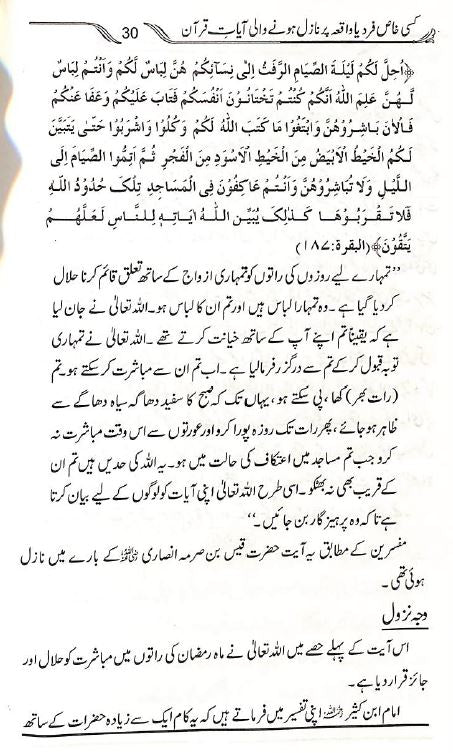 کسی خاص فرد یا واقعہ پر نازل ہونے والی آیاتِ قرآن
30
﴿اُحِلَّ لَكُمْ لَيْلَةَ الصِّيَامِ الرَّفَثُ اِلٰى نِسَآئِكُمْ هُنَّ لِبَاسٌ لَّكُمْ وَاَنْتُمْ لِبَاسٌ
لَّهُنَّ عَلِمَ اللّٰهُ اَنَّكُمْ كُنْتُمْ تَخْتَانُوْنَ اَنْفُسَكُمْ فَتَابَ عَلَيْكُمْ وَعَفَا عَنْكُمْ
فَالْاٰنَ بَاشِرُوْهُنَّ وَابْتَغُوْا مَا كَتَبَ اللّٰهُ لَكُمْ وَكُلُوْا وَاشْرَبُوْا حَتّٰى يَتَبَيَّنَ
لَكُمُ الْخَيْطُ الْاَبْيَضُ مِنَ الْخَيْطِ الْاَسْوَدِ مِنَ الْفَجْرِ ثُمَّ اَتِمُّوا الصِّيَامَ اِلَى
اللَّيْلِ وَلَا تُبَاشِرُوْهُنَّ وَاَنْتُمْ عَاكِفُوْنَ فِى الْمَسَاجِدِ تِلْكَ حُدُوْدُ اللّٰهِ
فَلَا تَقْرَبُوْهَا كَذٰلِكَ يُبَيِّنُ اللّٰهُ اٰيَاتِهٖ لِلنَّاسِ لَعَلَّهُمْ
يَتَّقُوْنَ﴾ (البقرۃ:۱۸۷)
”تمہارے لیے روزوں کی راتوں کو تمہاری ازواج کے ساتھ تعلق قائم کرنا حلال
کر دیا گیا ہے۔ وہ تمہارا لباس ہیں اور تم ان کا لباس ہو۔ اللہ تعالیٰ نے جان لیا
ہے کہ یقیناً تم اپنے آپ کے ساتھ خیانت کرتے تھے۔ اللہ تعالیٰ نے تمہاری
توبہ قبول کر کے تم سے درگزر فرما لیا ہے۔ اب تم ان سے مباشرت کر سکتے ہو۔ تم
(رات بھر) کھا، پی سکتے ہو، یہاں تک کہ صبح کا سفید دھاگہ سیاہ دھاگے سے
ظاہر ہو جائے، پھر رات تک روزہ پورا کرو اور عورتوں سے اس وقت مباشرت نہ
کرو جب تم مساجد میں اعتکاف کی حالت میں ہو۔ یہ اللہ کی حدیں ہیں تم ان
کے قریب بھی نہ پھٹکو۔ اسی طرح اللہ تعالیٰ اپنی آیات کو لوگوں کے لیے بیان کرتا
ہے تاکہ وہ پرہیز گار بن جائیں۔“
مفسرین کے مطابق یہ آیت حضرت قیس بن صرمہ انصاری رضی اللہ عنہ کے بارے میں نازل
ہوئی تھی۔
وجہ نزول
اس آیت کے پہلے حصے میں اللہ تعالیٰ نے ماہ رمضان کی راتوں میں مباشرت کو حلال اور
جائز قرار دیا ہے۔
امام ابن کثیر رحمہ اللہ اپنی تفسیر میں فرماتے ہیں کہ یہ کام ایک سے زیادہ حضرات کے ساتھ